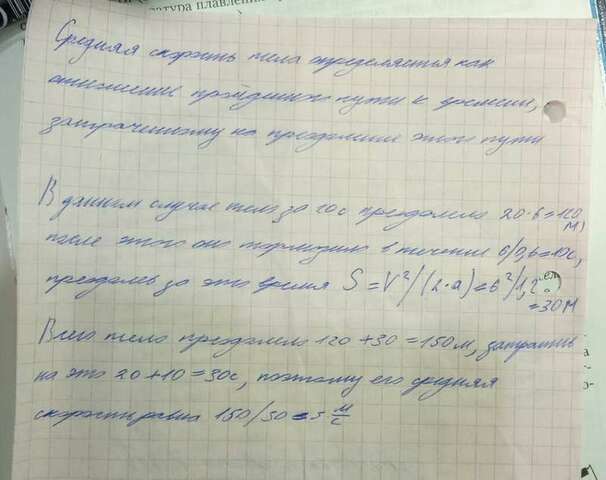 атура плавлени
Средняя скорость тела определяется как
отношение пройденного пути к времени,
затраченному на преодоление этого пути
В данном случае тело за 20с преодолело 20·6=120
м,
после этого оно тормозило в течении 6/0,6=10с,
преодолев за это время S=V²/(2·a)=6²/1,2
=30м
Всего тело преодолело 120+30=150м, затратив
на это 20+10=30с, поэтому его средняя
скорость равна 150/30=5 м/с